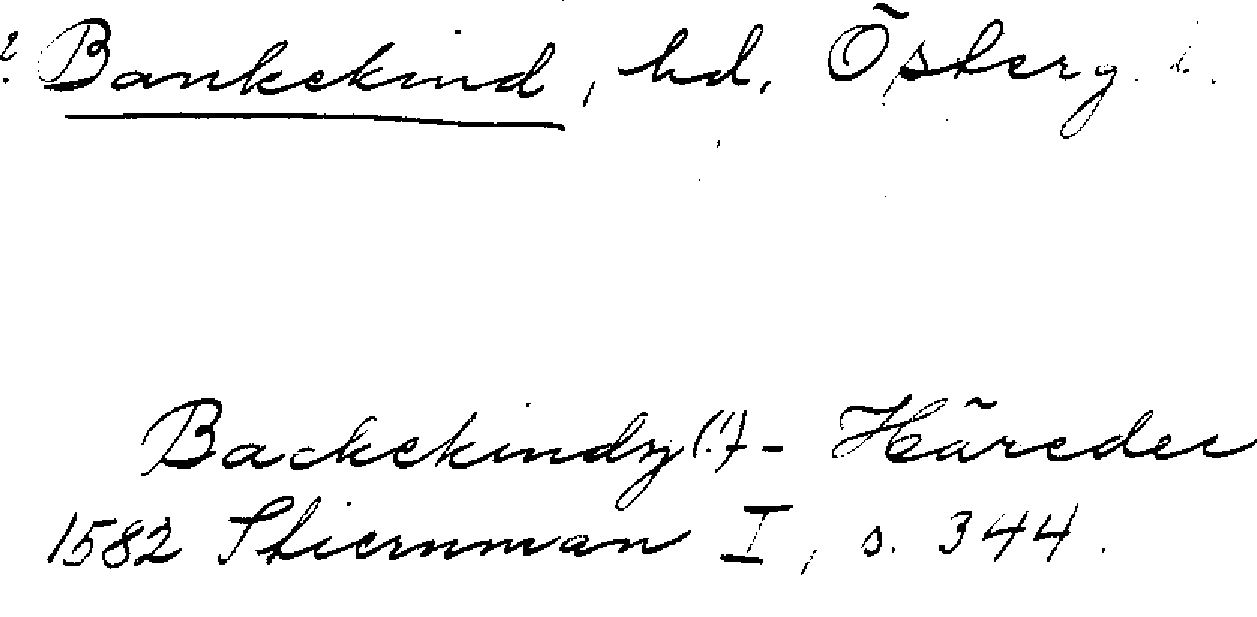 Bankekind, hd, Österg. l.
Backekindz(!)- Häreder
1582 Stiernman I, s. 344.